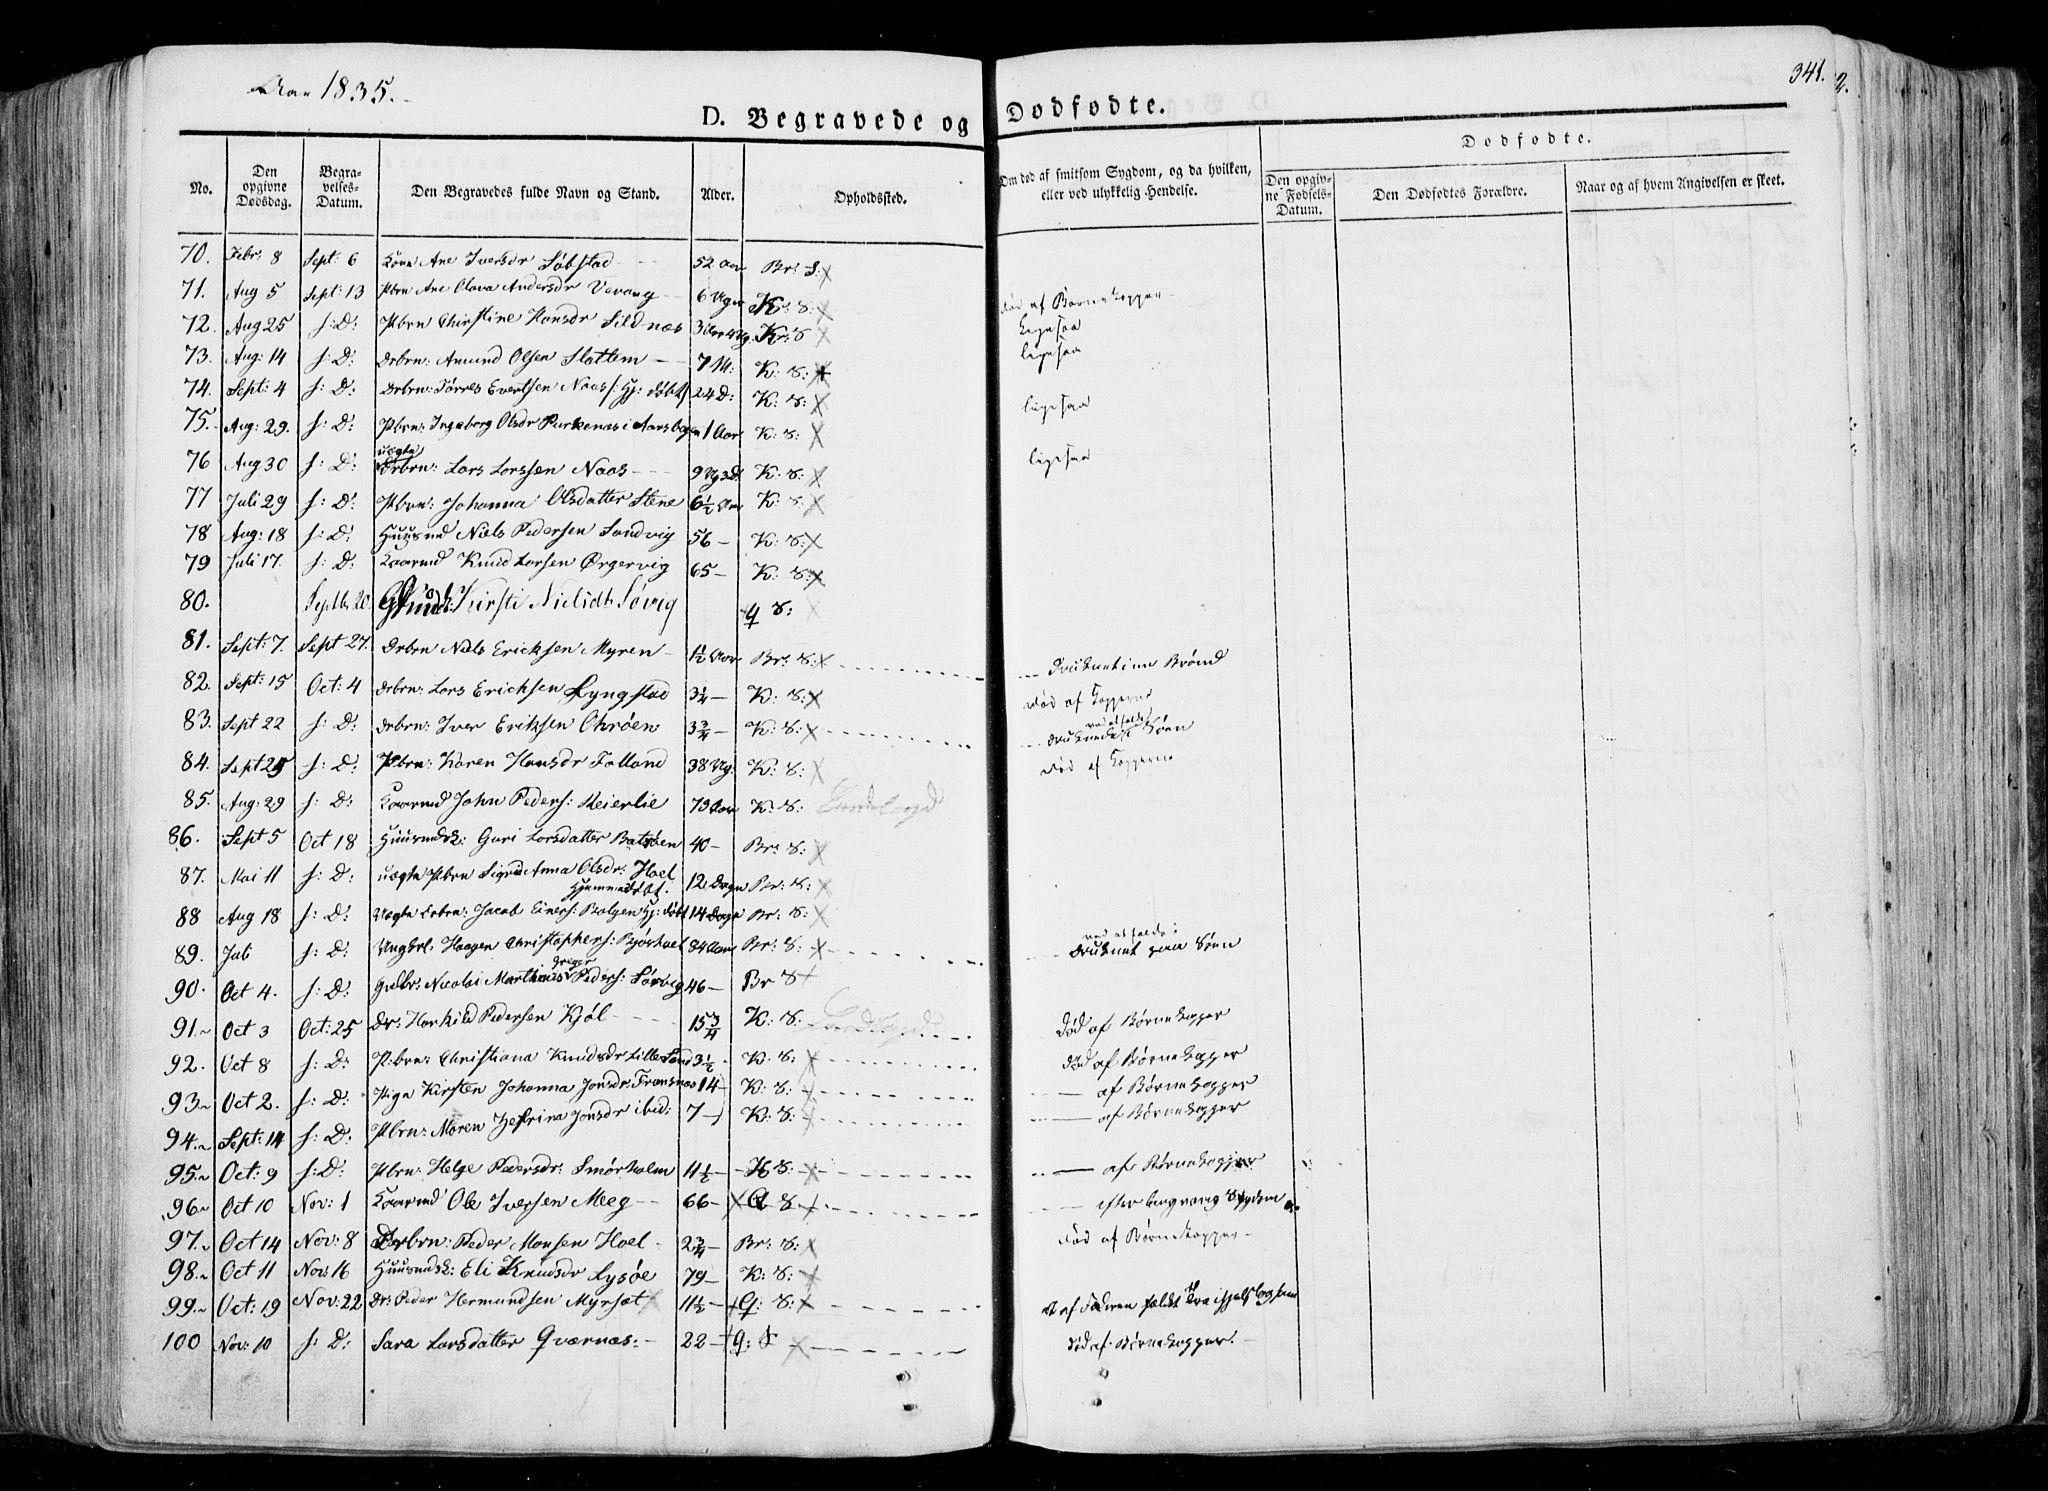 Aar 1835.
341.
2.
D. Begravede og Dødfødte.
No.
Den opgivne Dødsdag.
Begravelses-Datum.
Den Begravedes fulde Navn og Stand.
Alder.
Opholdssted.
Om død af smitsom Sygdom, og da hvilken, eller ved ulykkelig Hendelse.
Dødfødte.
Den opgivne Fødsels-Datum.
Den Dødfødtes Forældre.
Naar og af hvem Angivelsen er skeet.
70. Febr: 8 Sept: 6 Kone Ane Iversdr Søbstad 52 Aar Br: S:
71. Aug 5 Sept: 13 Pbrn Ane Olava Andersdr Vevang 6 Uger K: S: død af Børnekopper
72. Aug 25 s: D: Pbrn Christine Hansdr Sildnæs Kr: S ligesaa
73. Aug: 14 s: D: Drbrn: Amund Olsen Slattem 7 M: K: S: ligesaa
74. Sept: 4 s: D: Drbrn: Tørres Evertsen Naas (: Hj: døbt) 24 D: K: S: ligesaa
75. Aug: 29. s: D: Pbrn: Ingeborg Olsdr Purkenæs i 1 Aar K: S:
76 Aug 30 s: D: uægte Drbrn: Lars Larssen Naas 9 Ug 3 D: K: S: ligesaa
77 Juli 29 s: D: Pbrn: Johanna Olsdatter Stene 6½ Aar K: S:
78 Aug: 18 s: D: Huusmd Niels Pedersen Sandvig 56 — K: S:
79 Juli 17. s: D: Kaarmd Knud Larsen Ørgervig 65 — K: S:
80. Septbr 20 Kirsti Nielsdt: Søvig q S:
81. Sept: 7. Sept 27. Drbrn Niels Ericksen Myren 1½ Aar Br: S: druknet i en Brønd
82. Sept: 15 Oct: 4 Drbrn: Lars Erichsen Lyngstad 3¼ — K: S: død af Kopperne
83. Sept 22 s: D: Drbrn: Iver Eriksen Ohrøen 3¾ — K: S: druknede ved at falde i Søen
84. Sept 25 s: D: Pbrn: Karen Hansdr Folland 38 Ug: K: S: død af Kopperne
85. Aug: 29 s: D: Kaarmd John Peders: Reierlie 73 Aar K: S:
86. Sept 5 Oct 18 Huusmdsk: Guri Larsdatter Batsøen 40 — Br: S:
87. Mai 11 s: D: uægte Pbrn Sigrid Anna Olsdr: Hoel Hjemmedøbt. 12 Dage Br: S:
88 Aug 18 s: D: Uægte Drbrn: Jacob Einers: Bolgen Hj: døbt 14 Dage Br: S:
89. Juli s: D: Ungkrl: Haagen Christophers: 84 Aar Br: S: druknet ved at falde i Søen
90. Oct 4. s: D: Nicolai Marthinus Peders: Sørvig 46 — Br S
91. Oct 3 Oct: 25 Dr: Pedersen Kjøl 15¾ K: S: død af Børnekopper
92. Oct 8 s: D: Pbrn: Christiana Knudsdr Lillesand 3½ K: S: død af Børnekopper
93. Oct 2. s: D: Pige Kirsten Johanna Jonsdr: 14 — K: S: — af Børnekopper
94. Sept: 14 s: D: Pbrn: Maren Jonsdr ibid: 7 — K: S: — af Børnekopper
95. Oct: 9 s: D: Pbrn: Helge Pedersdr: Smørholm 11½ — K S: — af Børnekopper
96. Oct 10 Nov: 1 Kaarmd Ole Iversen Meeg 66 — Q S — efter langvarig Sygdom
97. Oct 14 Nov: 8 Drbrn: Peder Monsen Hoel 2¾ — Br: S: død af Børnekopper
98. Oct 11 Nov: 16 Huusmdsk: Eli Knudsdr Lysøe 79 — K: S:
99. Oct: 19 Nov: 22 Dr: Peder Hermundsen Myrsæt 11½ — Q: S:
100 Nov: 10 s: D: Sara Larsdatter Qværnæs: 22 — q: S død af Børnekopper.